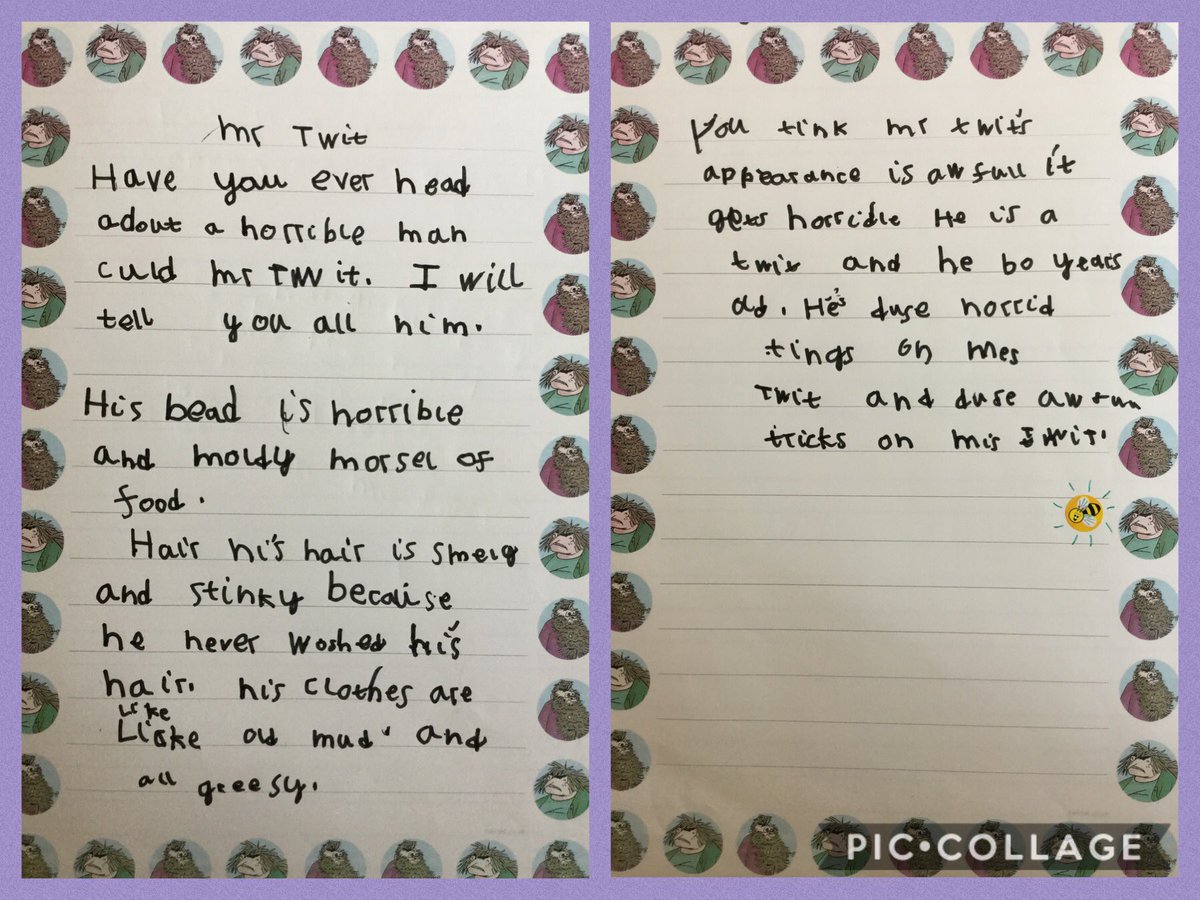 mr Twit
Have you ever head
adout a horrible man
culd mr TWit. I will
tell you all him.
His bead is horrible
and moldy morsel of
food.
Hair his hair is smelg
and stinky because
he never woshed his
hair. his clothes are
Like
Liske old mud and
all greesy.
You tink mr twit's
appearance is awfull it
gets horridle He is a
twit and he 60 years
old. He's duse horrid
tings on mes
Twit and duse awfull
tricks on mis Twit.
PIC•COLLAGE